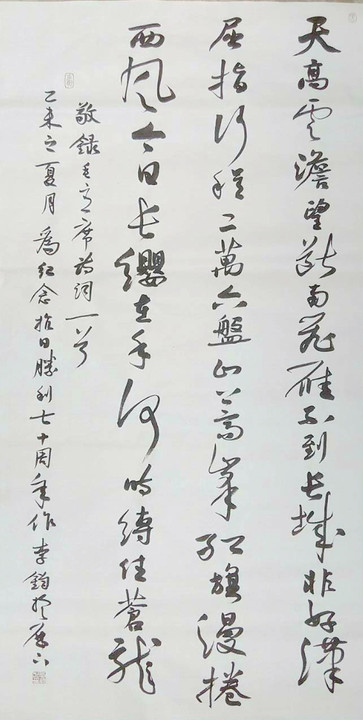 天高雲澹望斷南飛雁不到長城非好漢
屈指行程二萬六盤山上高峯紅旗漫捲
西風今日長纓在手何時縛住蒼龍
敬錄毛主席詩詞一首
乙未之夏月爲紀念抗日勝利七十周年作李